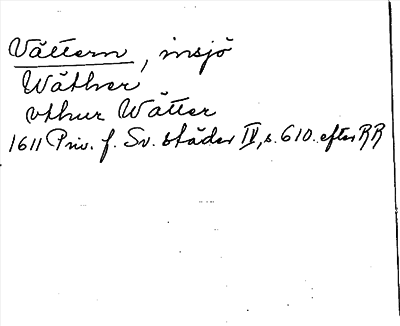 Vättern, insjö
Wäther
vthur Wätter
1611 Priv. f. Sv. städer IV, s. 610. efter RR